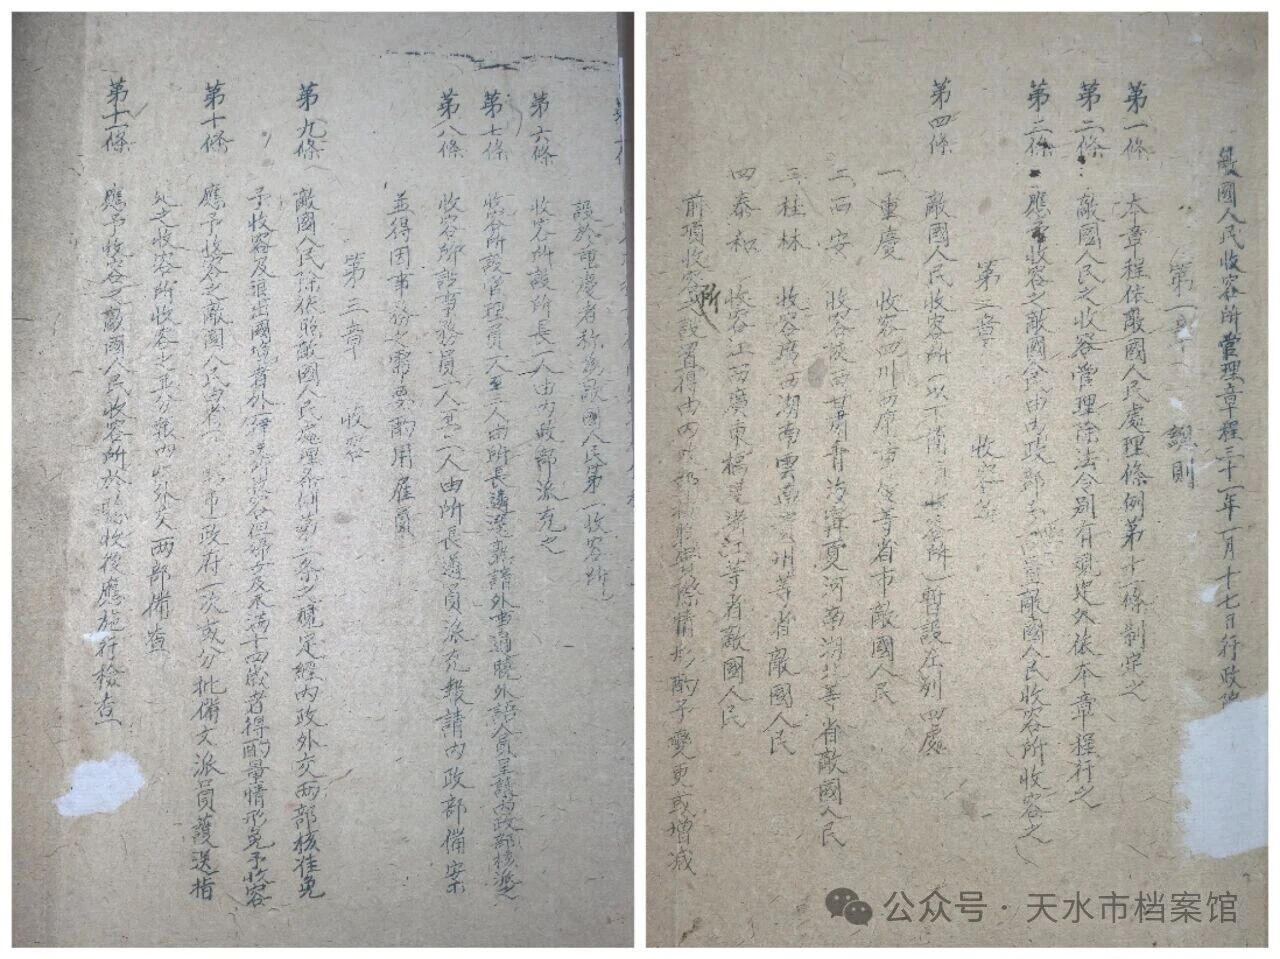 敵國人民收容所管理章程三十一年一月十七日行政院
第一章 總則
第一條 本章程依敵國人民處理條例第十一條制定之
第二條 敵國人民之收容管理除法令別有規定外依本章程行之
第三條 應予收容之敵國人民由內政部設置敵國人民收容所收容之
第二章 收容所
第四條 敵國人民收容所(以下簡稱收容所)暫設左列四處
一重慶 收容四川西康市等省市敵國人民
二西安 收容陝西甘肅青海寧夏河南湖北等省敵國人民
三桂林 收容廣西湖南雲南貴州等省敵國人民
四泰和 收容江西廣東福建浙江等省敵國人民
前項收容所設置得由內政部實際情形酌予變更或增減
設於重慶者称為敵國人民第一收容所
第六條 收容所設所長一人由內政部派充之
第七條 收容所設管理員一人至三人由所長遴選熟諳外事通曉外語人員呈請內政部核派之
第八條 收容所設事務員一人至二人由所長遴員派充報請內政部備案
並得因事務之需要酌用雇員
第三章 收容
第九條 敵國人民除依照敵國人民處理條例第二條之規定經內政外交兩部核准免
予收容及退出國境者外一律收容但婦女及未滿十四歲者得酌量情形免予收容
第十條 應予收容之敵國人民由省市政府一次或分批備文派員護送指
定之收容所收容之並分報內政外交兩部備查
第十一條 應予收容之敵國人民收容所於驗收後應施行檢查
公众号 · 天水市档案馆